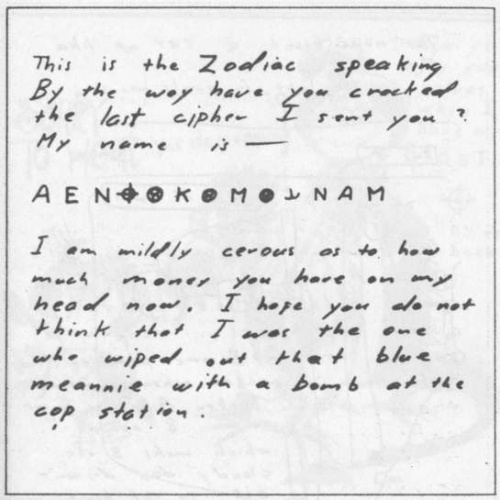 This is the Zodiac speaking
By the way have you cracked
the last cipher I sent you?
My name is —
A E N ⌖ ⊗ K ⊗ M ⊗ ⅄ N A M
I am mildly cerous as to how
much money you have on my
head now. I hope you do not
think that I was the one
who wiped out that blue
meannie with a bomb at the
cop station.